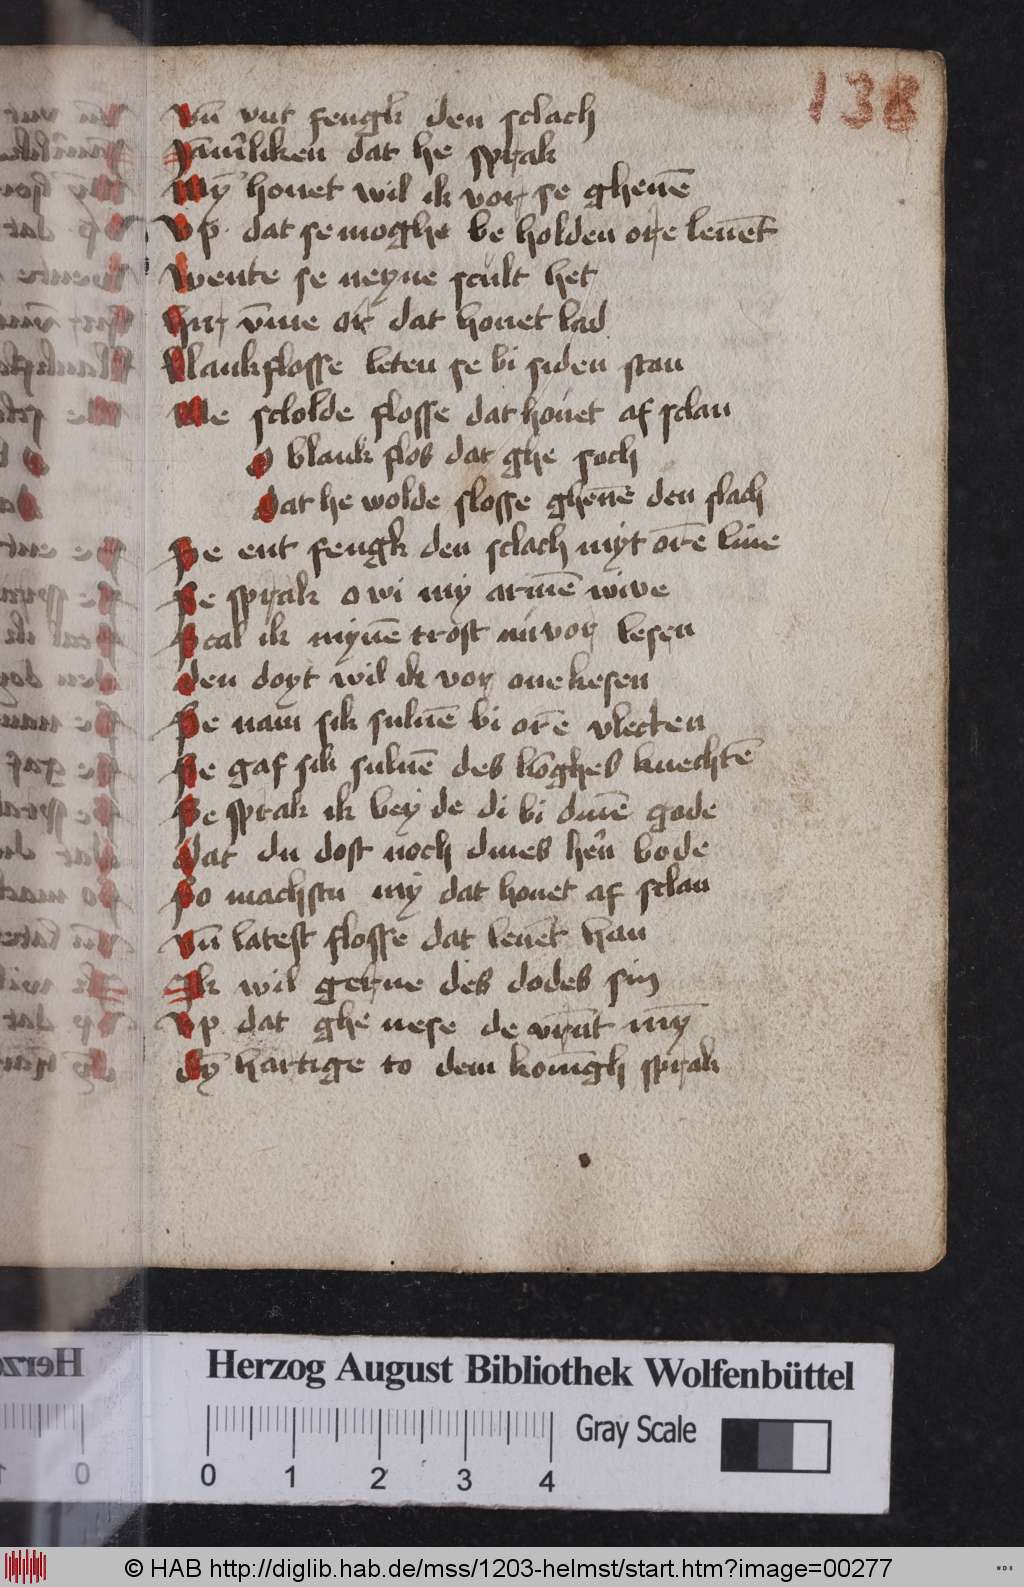 138
vn̄ vnt fengk den sclach
Jāmˀliken dat he sprak
My̅ houet wil ik vor se gheuē
Vp dat se moghe be holden ore leuēt
Wente se neyne scult het
Hir v̄me or dat houet lad
Blankflosse leten se bi siden stan
Me scolde flosse dat houet af sclan
O blank flos dat ghe sach
Dat he wolde flosse gheuē den slach
Se ent fengk den sclach myt orē liue
Se sprak o wi my armē wiue
Scal ik mynē trost nu vor lesen
den doyt wil ik vor one kesen
Se nam sik suluē bi orē vlechten
Se gaf sik suluē des kōghes knechtē
Se sprak ik bey de di bi dinē gode
dat du dost noch dines hen̄ bode
So machstu my dat houet af sclan
vn̄ latest flosse dat leuēt han
Ik wil gerne des dodes sin
Vp dat ghe nese de vrūt my̅
dy̅ hartige to dem konīgh sprak
Herzog August Bibliothek Wolfenbüttel
0 1 2 3 4
Gray Scale
© HAB http://diglib.hab.de/mss/1203-helmst/start.htm?image=00277